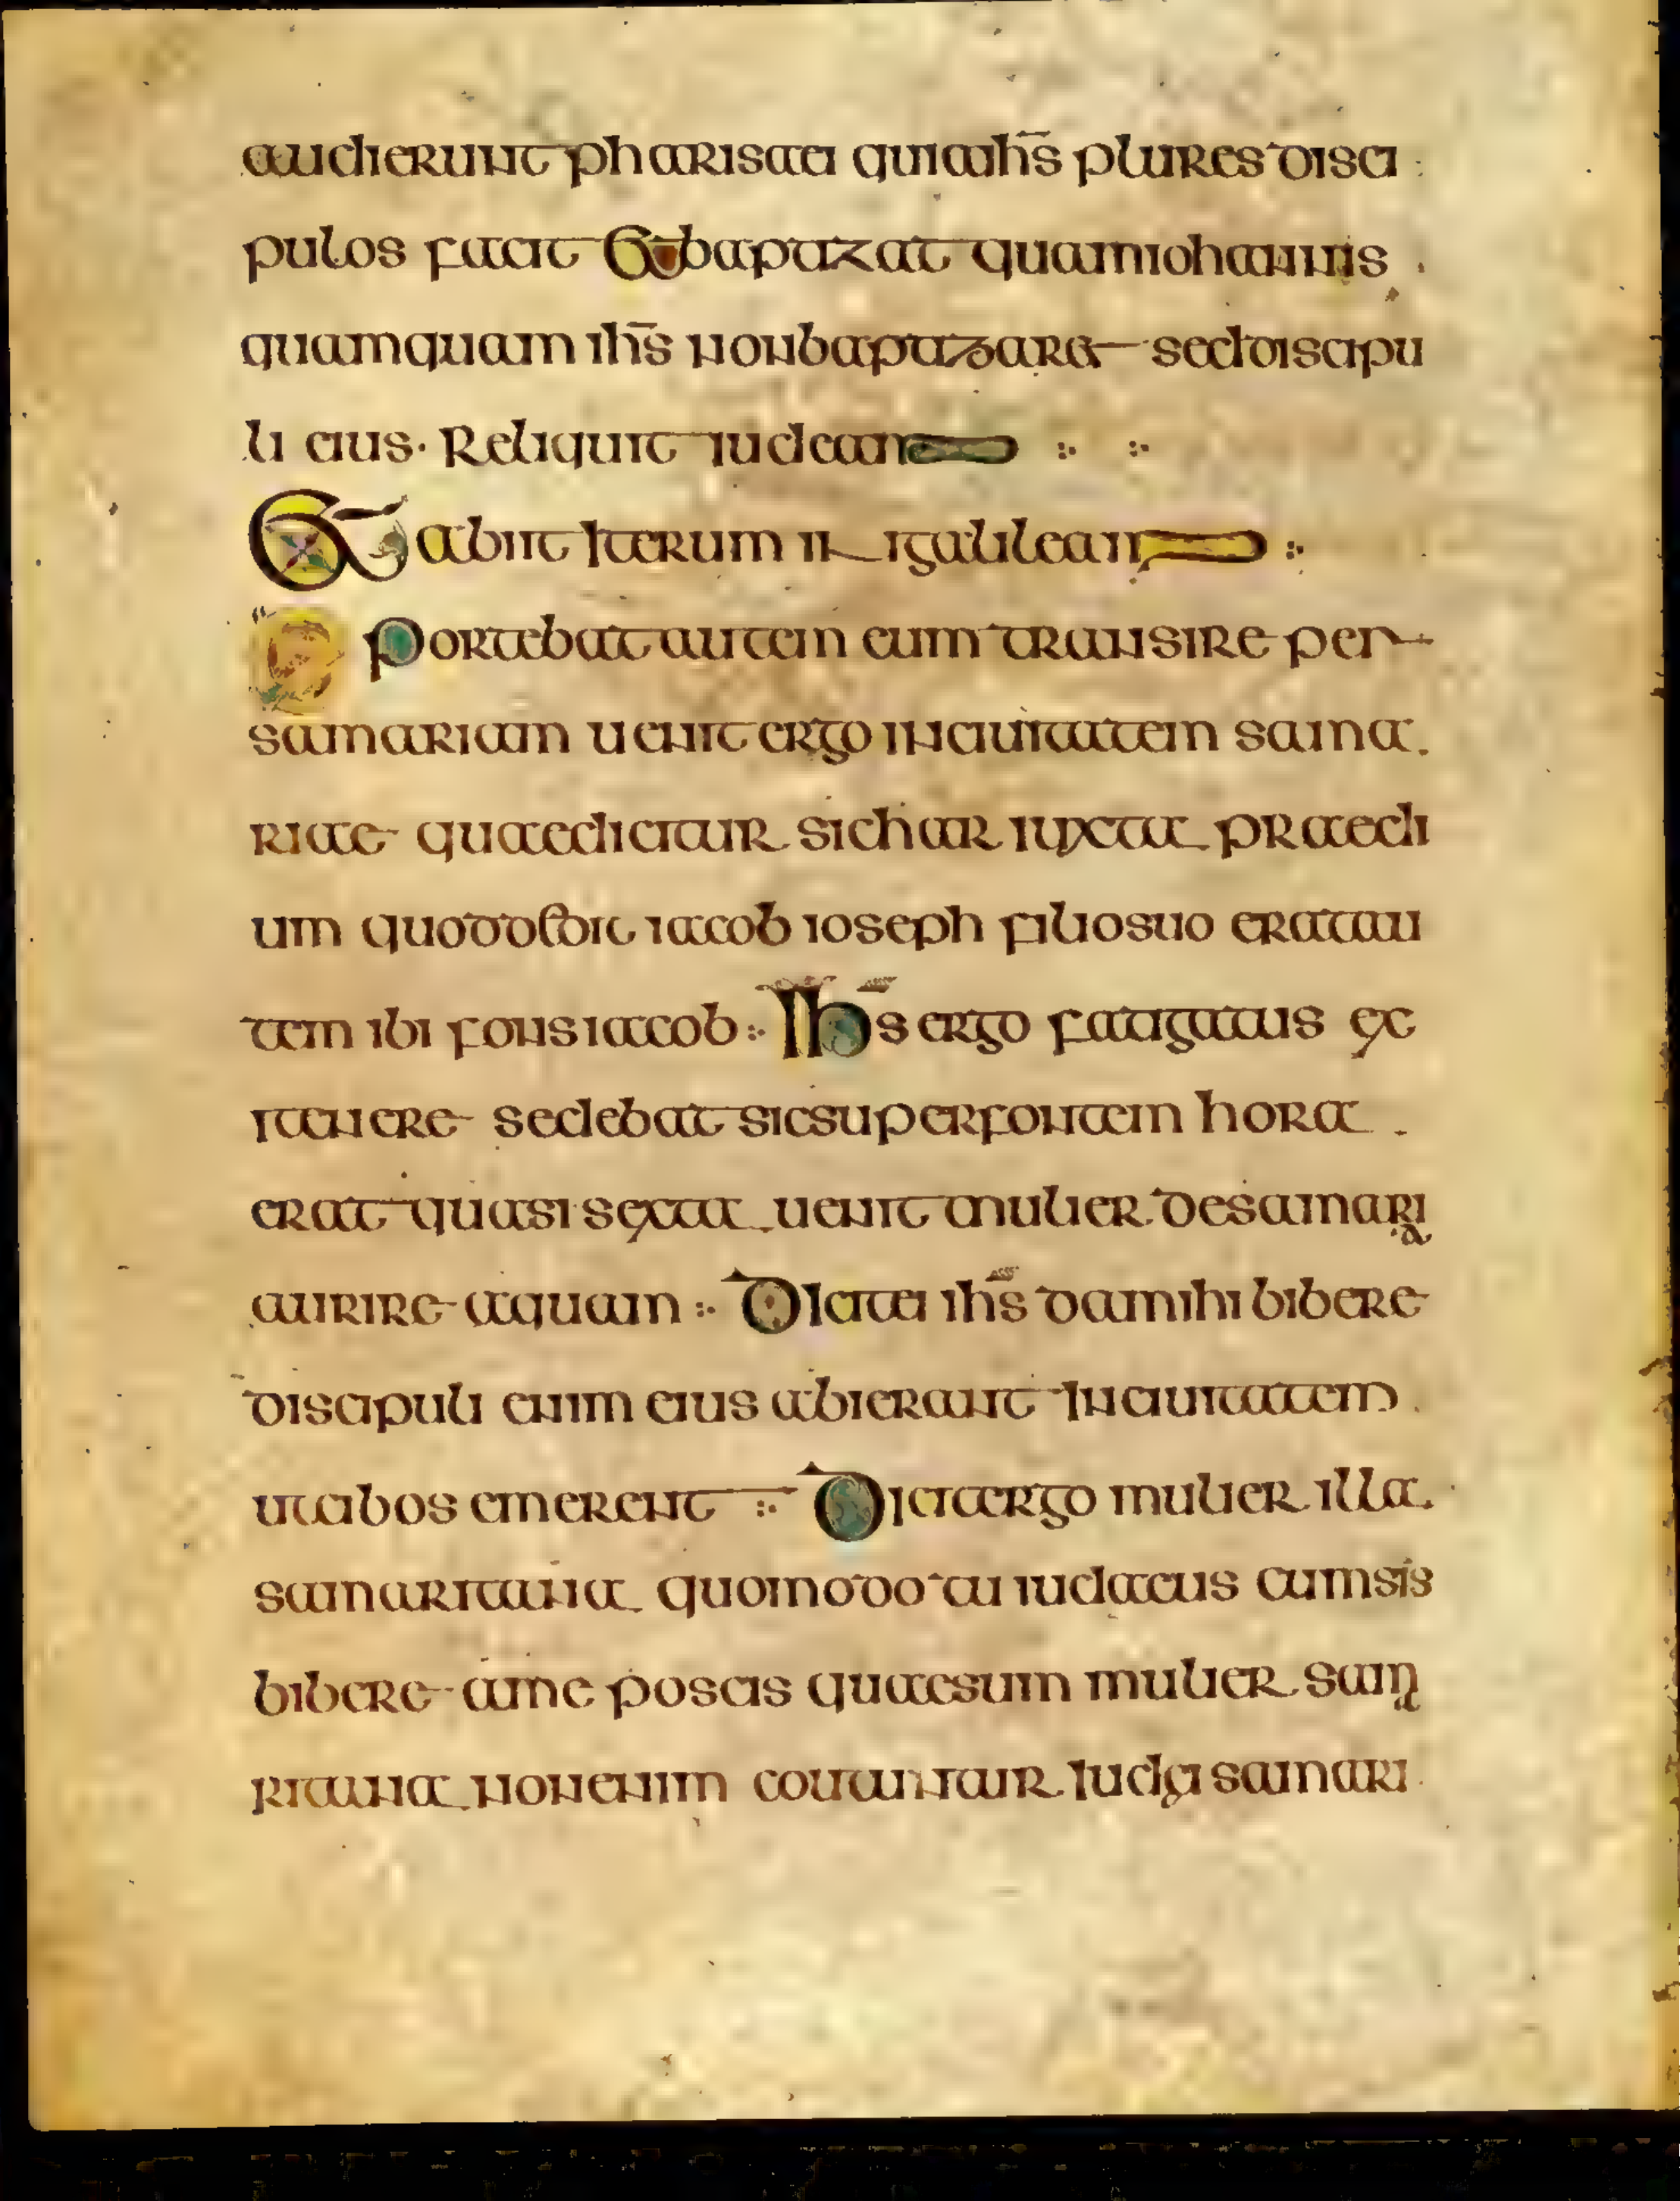 audierunt pharisaei quia ihs̄ plures disci
pulos facit et baptizat quam iohannis
quamquam ihs̄ non baptizaret sed discipu
li eius · Reliquit iudeam
Et abiit iterum in igalileam
Oportebat autem eum transire per
samariam uenit ergo in ciuitatem sama
riae quae dicitur sichar iuxta praedi
um quod dedit iacob ioseph filio suo erat au
tem ibi fons iacob Ihs̄ ergo fatigatus ex
itenere sedebat sic super fontem hora
erat quasi sexta uenit mulier de samaria
aurire aquam Dicit ei ihs̄ da mihi bibere
discipuli enim eius abierant in ciuitatem
ut cibos emerent Dicit ergo mulier illa
samaritana quomodo tu iudaeus cum sis
bibere a me poscis quae sum mulier sam
ritana non enim coutuntur Iudęi samari